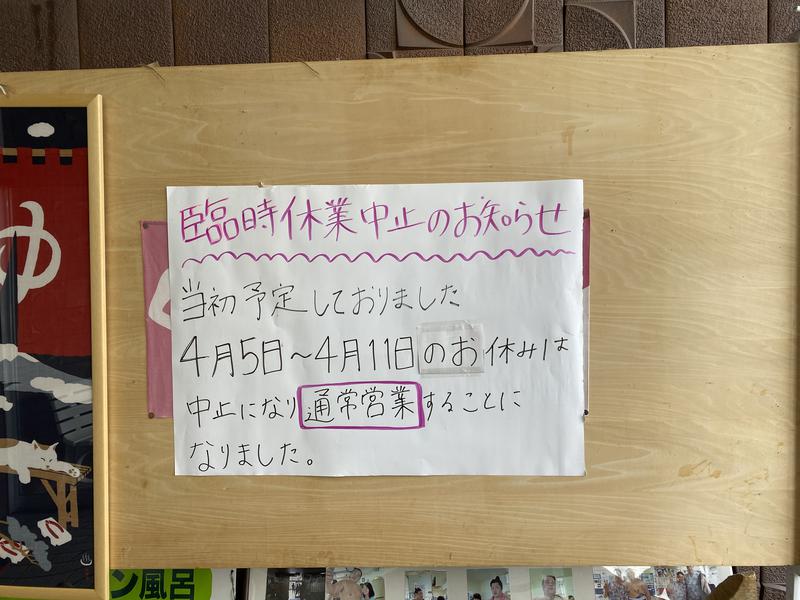 臨時休業中止のお知らせ
当初予定しておりました
4月5日～4月11日のお休みは
中止になり通常営業することに
なりました。
ゆ
ン風呂